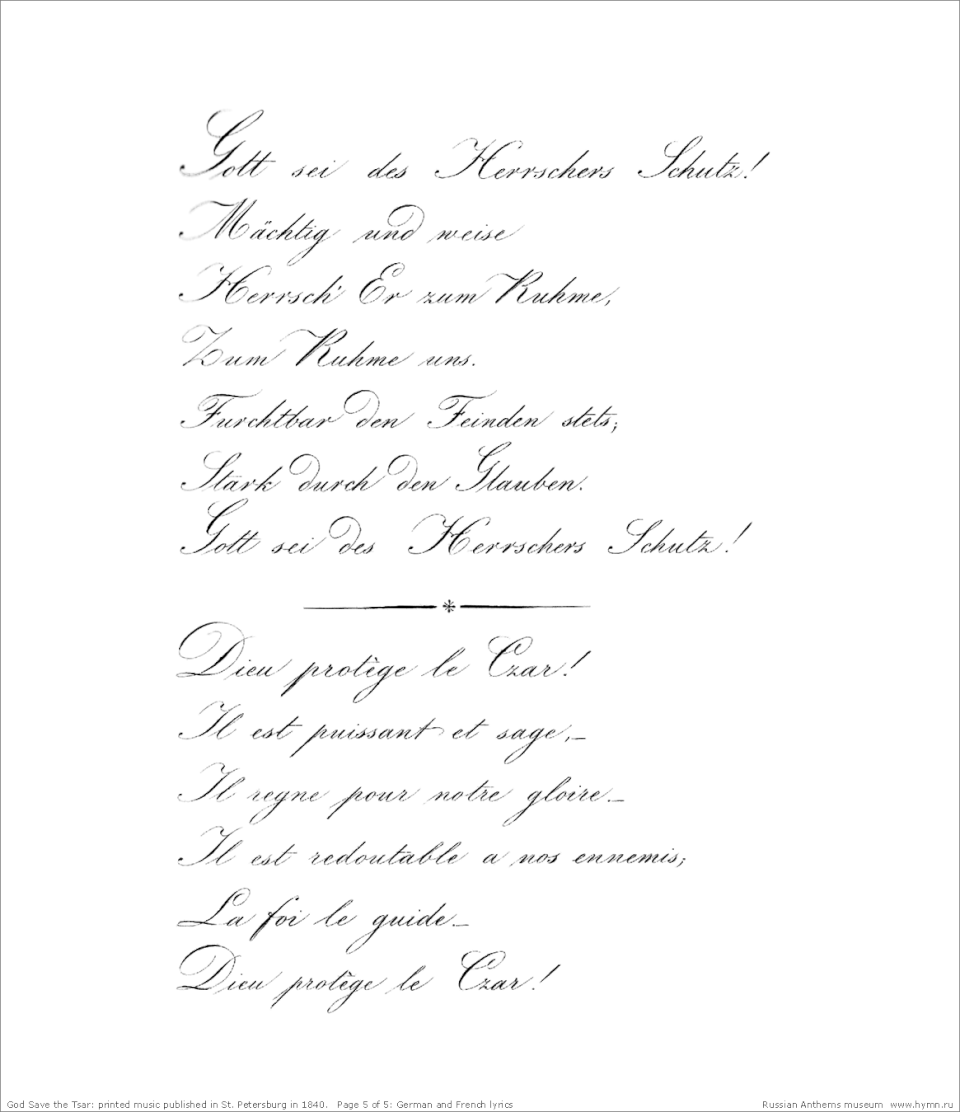 Gott sei des Herrschers Schutz!
Mächtig und weise
Herrsch' Er zum Ruhme,
Zum Ruhme uns.
Furchtbar den Feinden stets;
Stark durch den Glauben.
Gott sei des Herrschers Schutz!
Dieu protège le Czar!
Il est puissant et sage,_
Il regne pour notre gloire_
Il est redoutable a nos ennemis;
La foi le guide_
Dieu protège le Czar!
God Save the Tsar: printed music published in St. Petersburg in 1840. Page 5 of 5: German and French lyrics
Russian Anthems museum www.hymn.ru